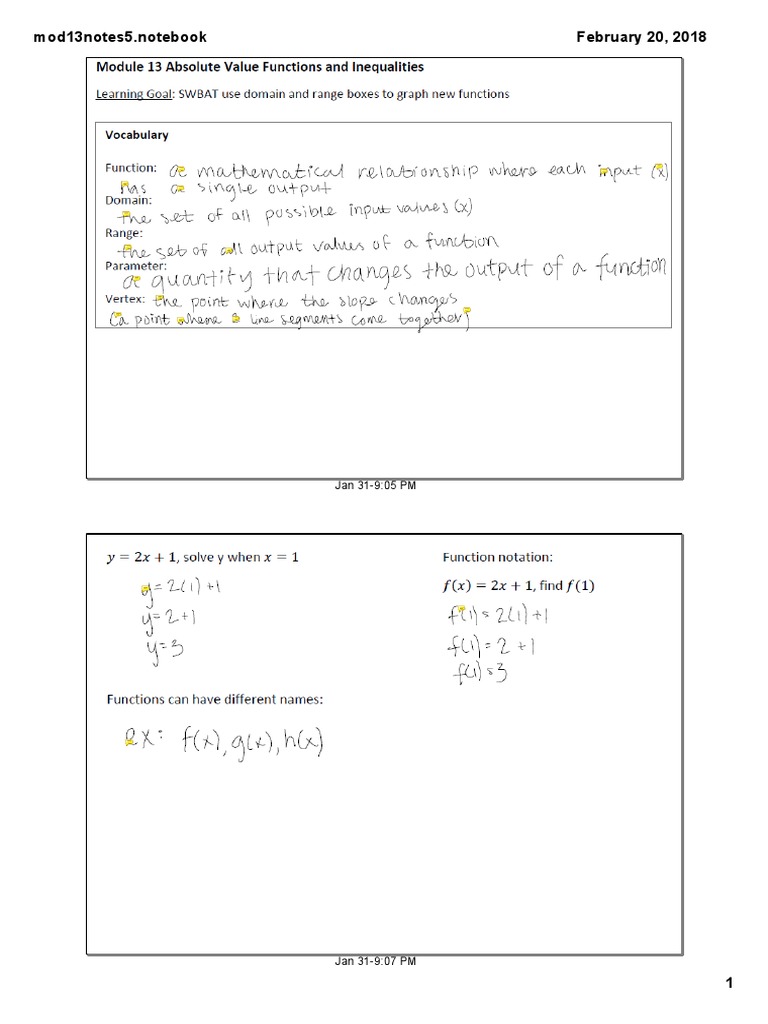 mod13notes5.notebook
February 20, 2018
Module 13 Absolute Value Functions and Inequalities
Learning Goal: SWBAT use domain and range boxes to graph new functions
Vocabulary
Function: a mathematical relationship where each input (x)
has a single output
Domain:
the set of all possible input values (x)
Range:
the set of all output values of a function
Parameter:
a quantity that changes the output of a function
Vertex: the point where the slope changes
(a point where 2 line segments come together)
Jan 31-9:05 PM
y = 2x + 1, solve y when x = 1
y = 2(1) + 1
y = 2 + 1
y = 3
Function notation:
f(x) = 2x + 1, find f(1)
f(1) = 2(1) + 1
f(1) = 2 + 1
f(1) = 3
Functions can have different names:
ex: f(x), g(x), h(x)
Jan 31-9:07 PM
1